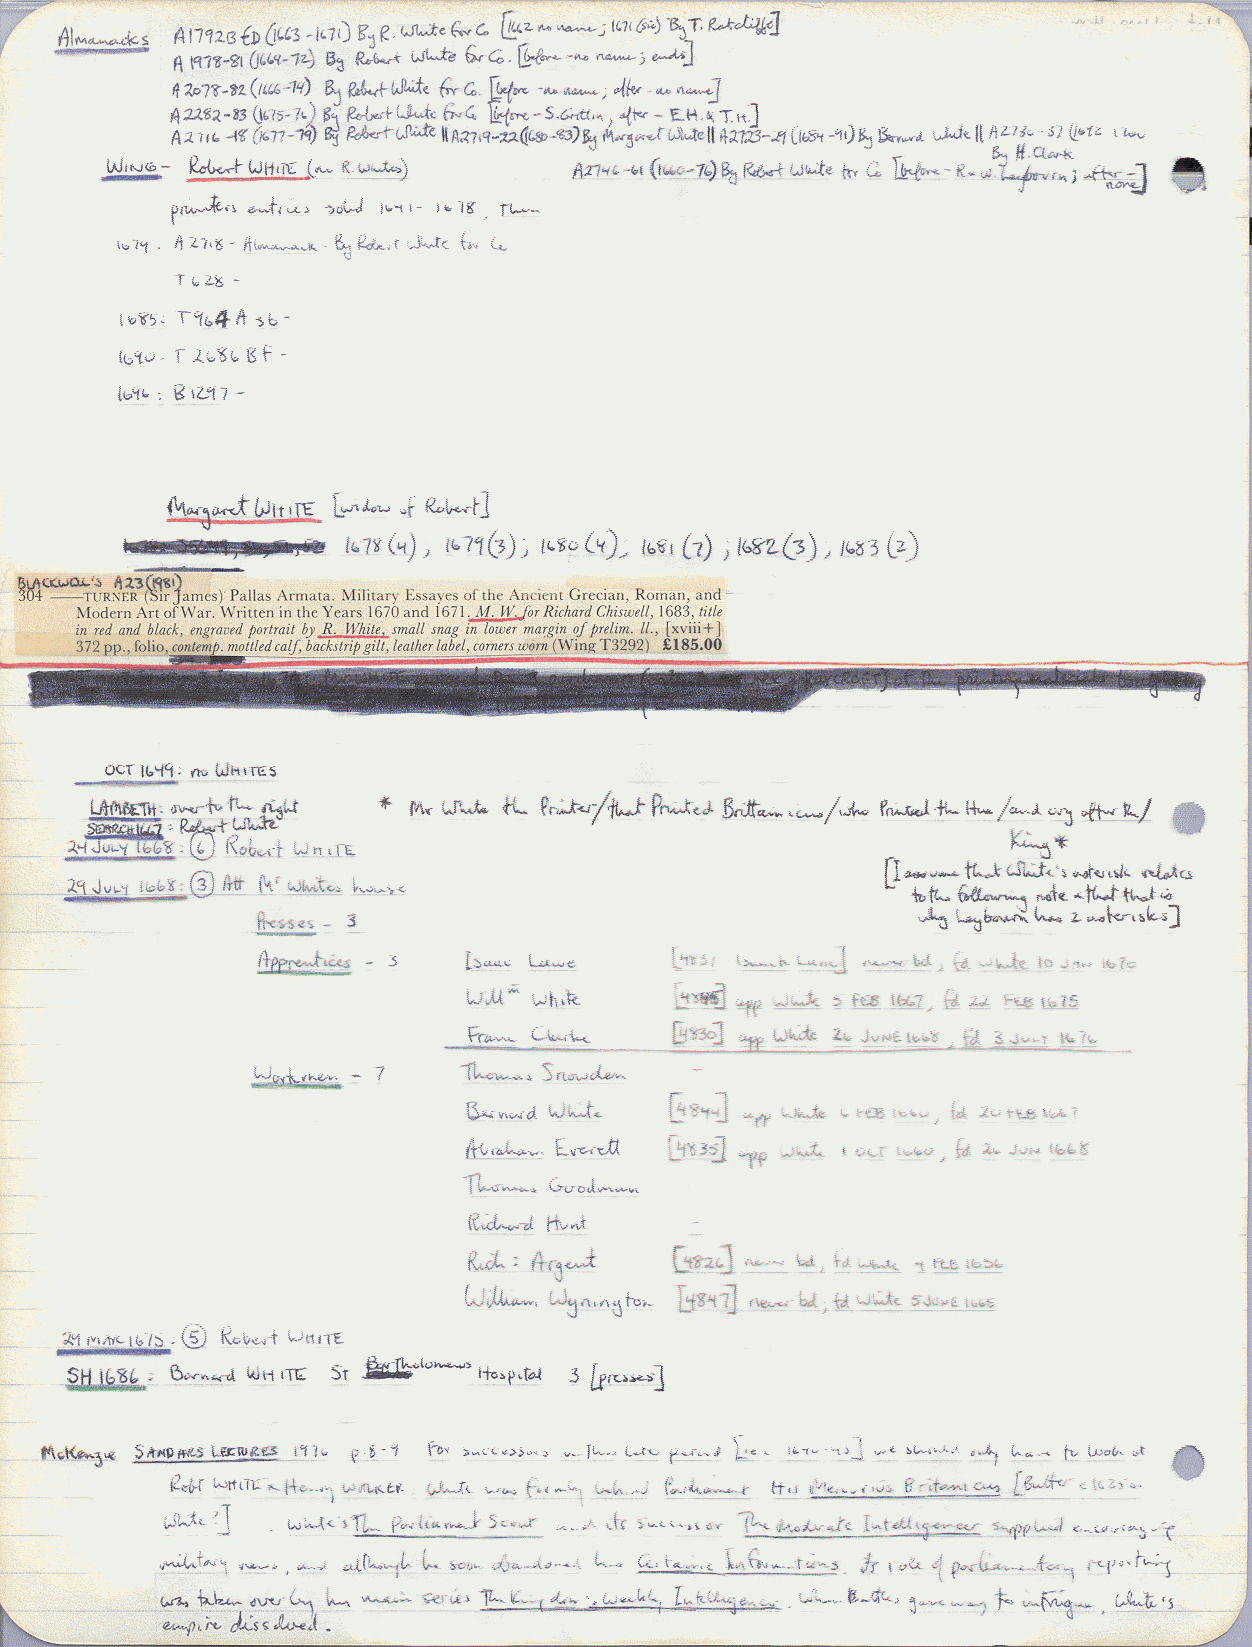 Almanacks A1792B ED (1663-1671) By R. White for Co [1662 no name; 1671 (sic) By T. Ratcliffe]
A 1978-81 (1669-72) By Robert White for Co. [before - no name; ends]
A 2078-82 (1666-74) By Robert White for Co. [before - no name; after - no name]
A 2282-83 (1675-76) By Robert White for Co [before - S. Griffin, after - E.H. & T.H.]
A 2716-18 (1677-79) By Robert White || A2719-22 (1680-83) By Margaret White || A2723-29 (1684-91) By Bernard White || A 2730-37
By H. Clark
WING - Robert WHITE (no R. Whites) A2746-61 (1660-76) By Robert White for Co [before - R & W. Leybourn; after - none]
printers entries solid 1641-1678. Then
1679. A 2718 - Almanack - By Robert White for Co
T 628 -
1685: T 964 A 36 -
1690 - T 2686 BF -
1696: B 1297 -
Margaret WHITE [widow of Robert]
1678 (4), 1679 (3); 1680 (4), 1681 (7); 1682 (3), 1683 (2)
BLACKWELL'S A23 (1981)
304 ——TURNER (Sir James) Pallas Armata. Military Essayes of the Ancient Grecian, Roman, and
Modern Art of War. Written in the Years 1670 and 1671. M. W. for Richard Chiswell, 1683, title
in red and black, engraved portrait by R. White, small snag in lower margin of prelim. ll., [xviii+]
372 pp., folio, contemp. mottled calf, backstrip gilt, leather label, corners worn (Wing T3292) £185.00
OCT 1649: no WHITES
LAMBETH: over to the right * Mr White the Printer/that Printed Brittanicus/who Printed the Hue/and cry after the/
King*
SEARCH 1667: Robert White
24 JULY 1668: (6) Robert WHITE
[I assume that White's asterisk relates
to the following note & that that is
why Leybourn has 2 asterisks]
29 JULY 1668: (3) Att Mr Whites house
Presses - 3
Apprentices - 3 Isaac Lawe [4831 never bd, fd White 10 JAN 1670
Willm White app White 5 FEB 1667, fd 22 FEB 1675
Franc Clarke [4830] app White 26 JUNE 1668, fd 3 JULY 1676
Workmen - 7 Thomas Snowden -
Bernard White [4844] app White 6 FEB 1660, fd 20 FEB 1667
Abraham Everett [4835] app White 1 OCT 1660, fd 26 JUN 1668
Thomas Goodman
Richard Hunt -
Rich: Argent [4826] never bd, fd White 4 FEB 1656
William Wynington [4847] never bd; fd White 5 JUNE 1665
29 MAR 1675. (5) Robert WHITE
SH 1686: Barnard WHITE St Bartholomews Hospital 3 [presses]
McKenzie SANDARS LECTURES 1976 p. 8-9 For successors in this late period [i.e. we should only have to look at
Robt WHITE & Henry WALKER. White was firmly behind Parliament. His Mercurius Britanicus [Butter c 1625 &
White?]. White's The Parliament Scout and its successor The Moderate Intelligencer supplied
military news, and although he soon abandoned his Certaine Informations. Its role of parliamentary reporting
was taken over by his main series The Kingdom's Weekly Intelligencer. When Battles gave way to intrigue, White's
empire dissolved.